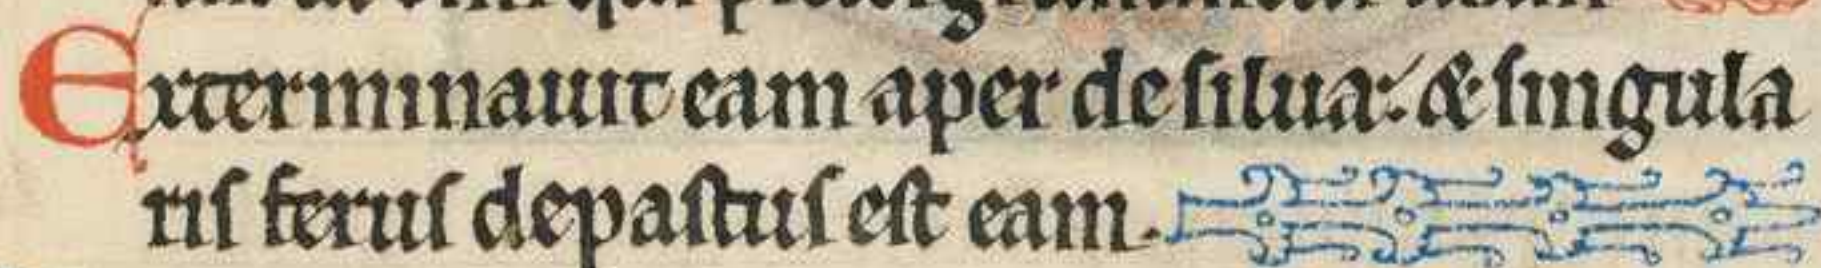 Exterminauit eam aper de silua: & singula
ris ferus depastus est eam.